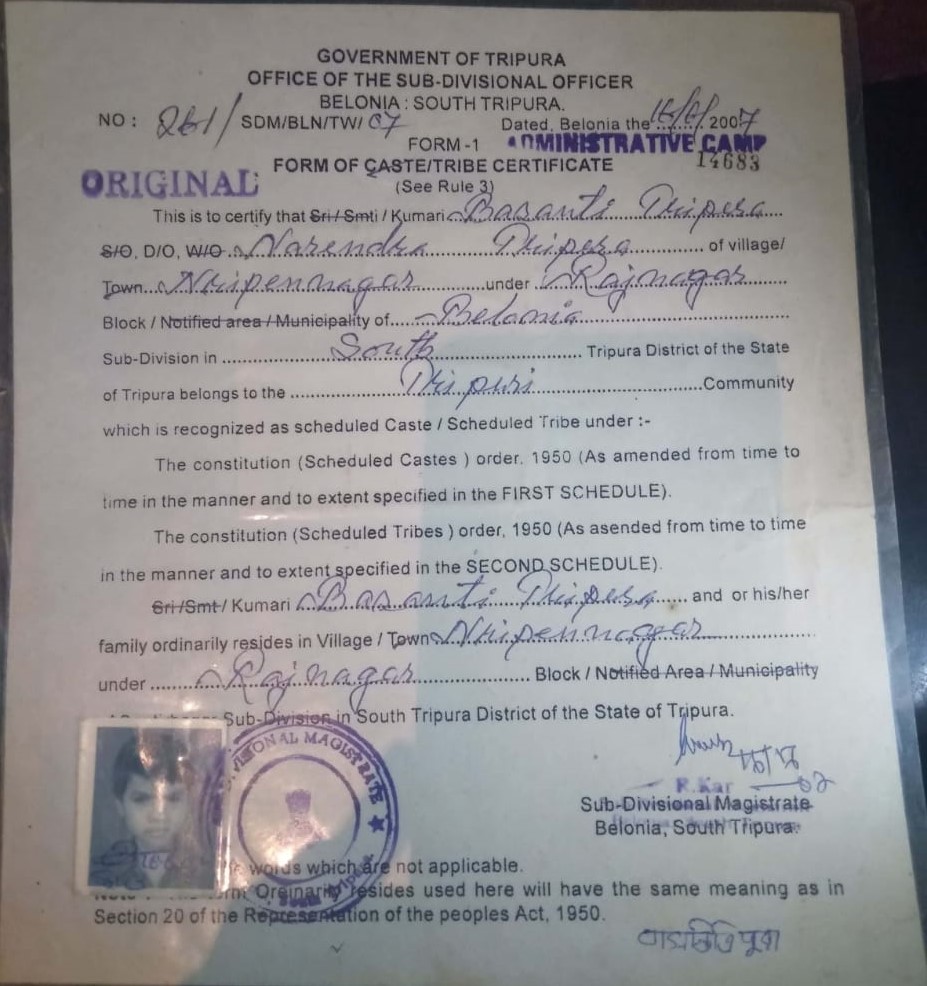 GOVERNMENT OF TRIPURA
OFFICE OF THE SUB-DIVISIONAL OFFICER
BELONIA : SOUTH TRIPURA.
NO : 261/ SDM/BLN/TW/ 07 Dated, Belonia the 16/6/2007
FORM -1 ADMINISTRATIVE CAMP
FORM OF CASTE/TRIBE CERTIFICATE 14683
ORIGINAL (See Rule 3)
This is to certify that Sri / Smti / Kumari Basanti Tripura
S/O, D/O, W/O Narendra Tripura of village/
Town Nripennagar under Rajnagar
Block / Notified area / Municipality of Belonia
Sub-Division in South Tripura District of the State
of Tripura belongs to the Tripuri Community
which is recognized as scheduled Caste / Scheduled Tribe under :-
The constitution (Scheduled Castes ) order. 1950 (As amended from time to
time in the manner and to extent specified in the FIRST SCHEDULE).
The constitution (Scheduled Tribes ) order, 1950 (As asended from time to time
in the manner and to extent specified in the SECOND SCHEDULE).
Sri /Smt / Kumari Basanti Tripura and or his/her
family ordinarily resides in Village / Town Nripennagar
under Rajnagar Block / Notified Area / Municipality
Sub-Division in South Tripura District of the State of Tripura.
VISIONAL MAGISTRATE
R. Kar
Sub-Divisional Magistrate
Belonia, South Tripura
words which are not applicable.
Oreinarily resides used here will have the same meaning as in
Section 20 of the Representation of the peoples Act, 1950.